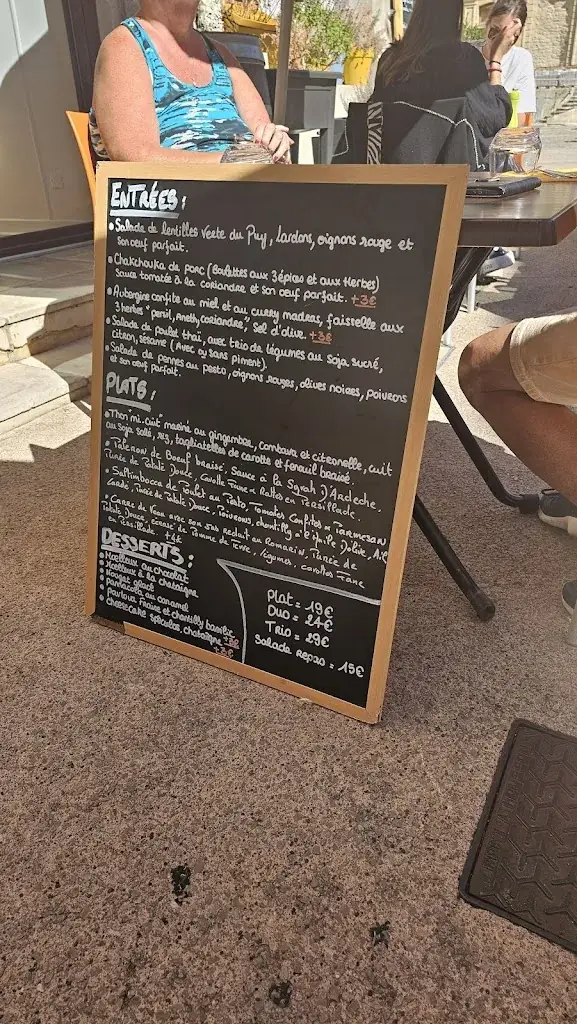 ENTRÉES :
• Salade de lentilles verte du Puy, lardons, oignons rouge et
son oeuf parfait.
• Chakchouka de porc (Boulettes aux 3 épices et aux Herbes)
Sauce tomatée à la coriandre et son oeuf parfait. +3€
• Aubergine confite au miel et au curry madras, faisselle aux
3 herbes "persil, Aneth, coriandre", Sel d'olive. +3€
• Salade de poulet thaï, avec trio de légumes au soja sucré,
citron, sésame (Avec ou sans piment).
• Salade de pennes au pesto, oignons rouges, olives noires, poivrons
et son oeuf parfait.
PLATS :
• Thon "mi-cuit" mariné au gingembre, combava et citronelle, cuit
au soja salé, riz, tagliatelles de carotte et fenouil braisé.
• Paleron de Boeuf braisé, Sauce à la Syrah D'Ardeche,
Purée de Patate Douce, Carotte Fane et Rattes en Persillade.
• Saltimbocca de Poulet au Pesto, Tomates Confites et Parmesan
Lardé, Purée de Patate Douce, Poivrons, chantilly à l'huile D'olive, Ail
• Carré de Veau avec son jus reduit au Romarin, Purée de
Patate Douce, Ecrasé de Pomme de Terre, légumes, carottes Fane
en Persillade +4€
DESSERTS :
• Moelleux au chocolat
• Moelleux à la chataigne
• Nougat glacé
• panacotta au caramel
• pavlova Fraise et chantilly basilic +3€
• cheesecake spéculos, chataigne +3€
Plat = 19€
Duo = 24€
Trio = 29€
Salade repas = 15€